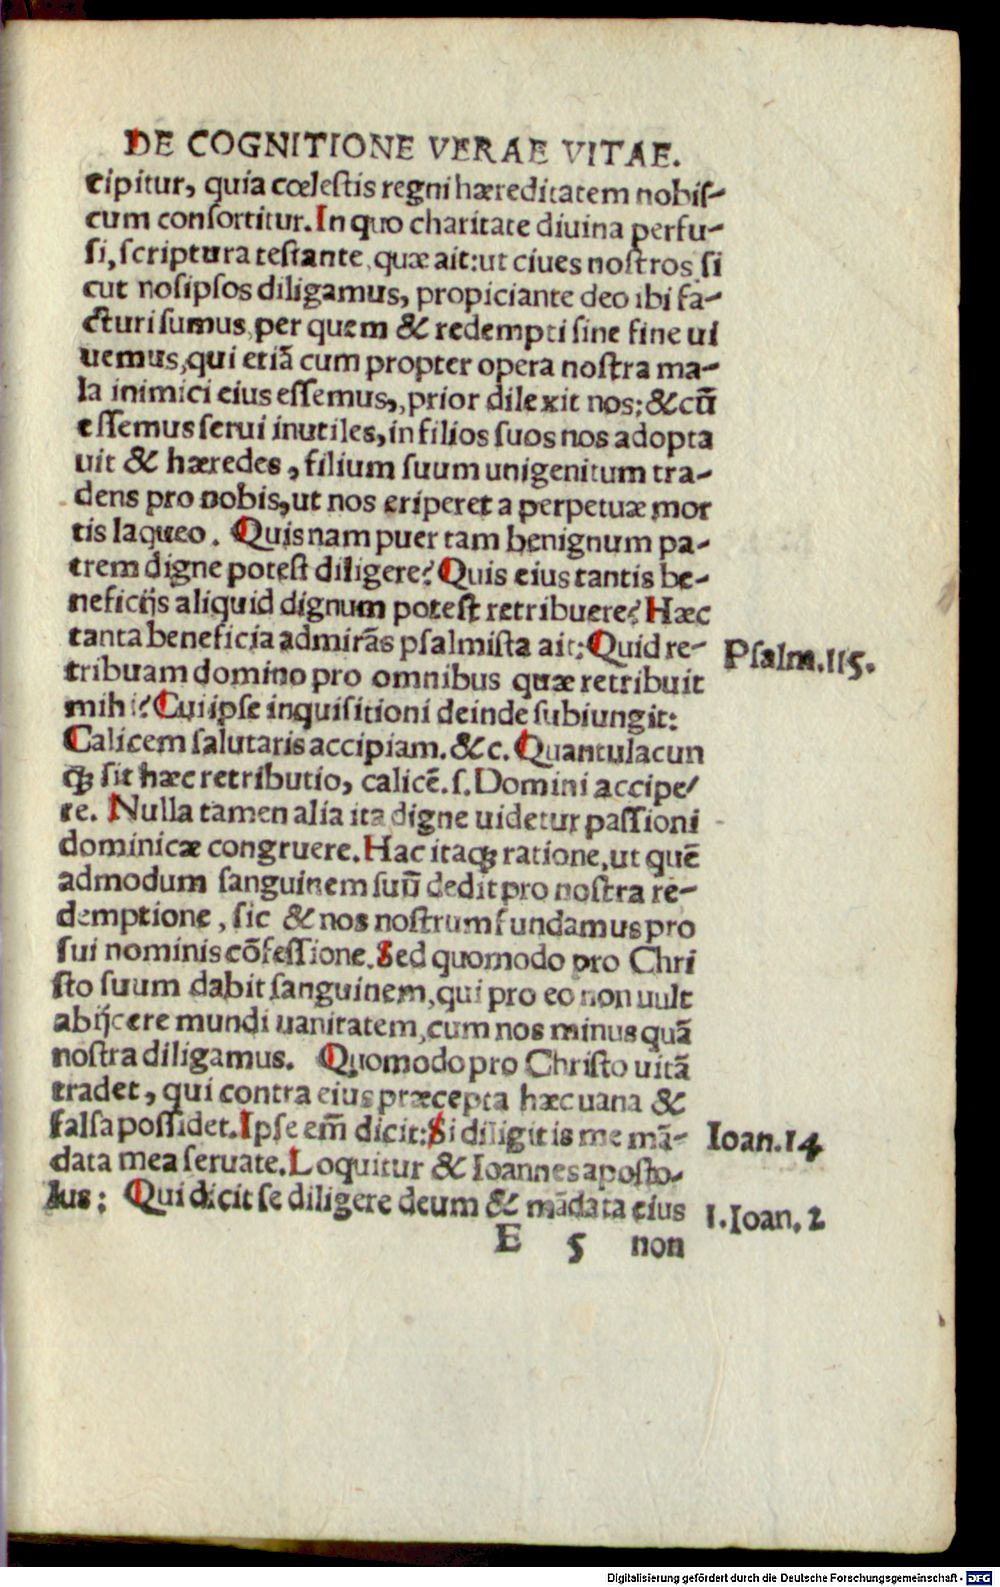 DE COGNITIONE VERAE VITAE.
cipitur, quia cœlestis regni hæreditatem nobis-
cum consortitur. In quo charitate diuina perfu-
si, scriptura testante, quæ ait: ut ciues nostros si
cut nosipsos diligamus, propiciante deo ibi fa-
cturi sumus, per quem & redempti sine fine ui
uemus, qui etiā cum propter opera nostra ma-
la inimici eius essemus, prior dilexit nos: & cū
essemus serui inutiles, in filios suos nos adopta
uit & hæredes, filium suum unigenitum tra-
dens pro nobis, ut nos eriperet a perpetuæ mor
tis laqueo. Quisnam puer tam benignum pa-
trem digne potest diligere? Quis eius tantis be-
neficijs aliquid dignum potest retribuere? Hæc
tanta beneficia admirās psalmista ait: Quid re-
Psalm. 115.
tribuam domino pro omnibus quæ retribuit
mihi? Cui ipse inquisitioni deinde subiungit:
Calicem salutaris accipiam. &c. Quantulacun
qꝫ sit hæc retributio, calicē. s. Domini accipe/
re. Nulla tamen alia ita digne uidetur passioni
dominicæ congruere. Hac itaqꝫ ratione, ut quē
admodum sanguinem suū dedit pro nostra re-
demptione, sic & nos nostrum fundamus pro
sui nominis cōfessione. Sed quomodo pro Chri
sto suum dabit sanguinem, qui pro eo non uult
abijcere mundi uanitatem, cum nos minus quā
nostra diligamus. Quomodo pro Christo uitā
tradet, qui contra eius præcepta hæc uana &
falsa possidet. Ipse em̄ dicit: Si diligitis me mā-
Ioan. 14
data mea seruate. Loquitur & Ioannes aposto-
lus: Qui dicit se diligere deum & mādata eius
1. Ioan. 2
E 5 non
Digitalisierung gefördert durch die Deutsche Forschungsgemeinschaft - DFG